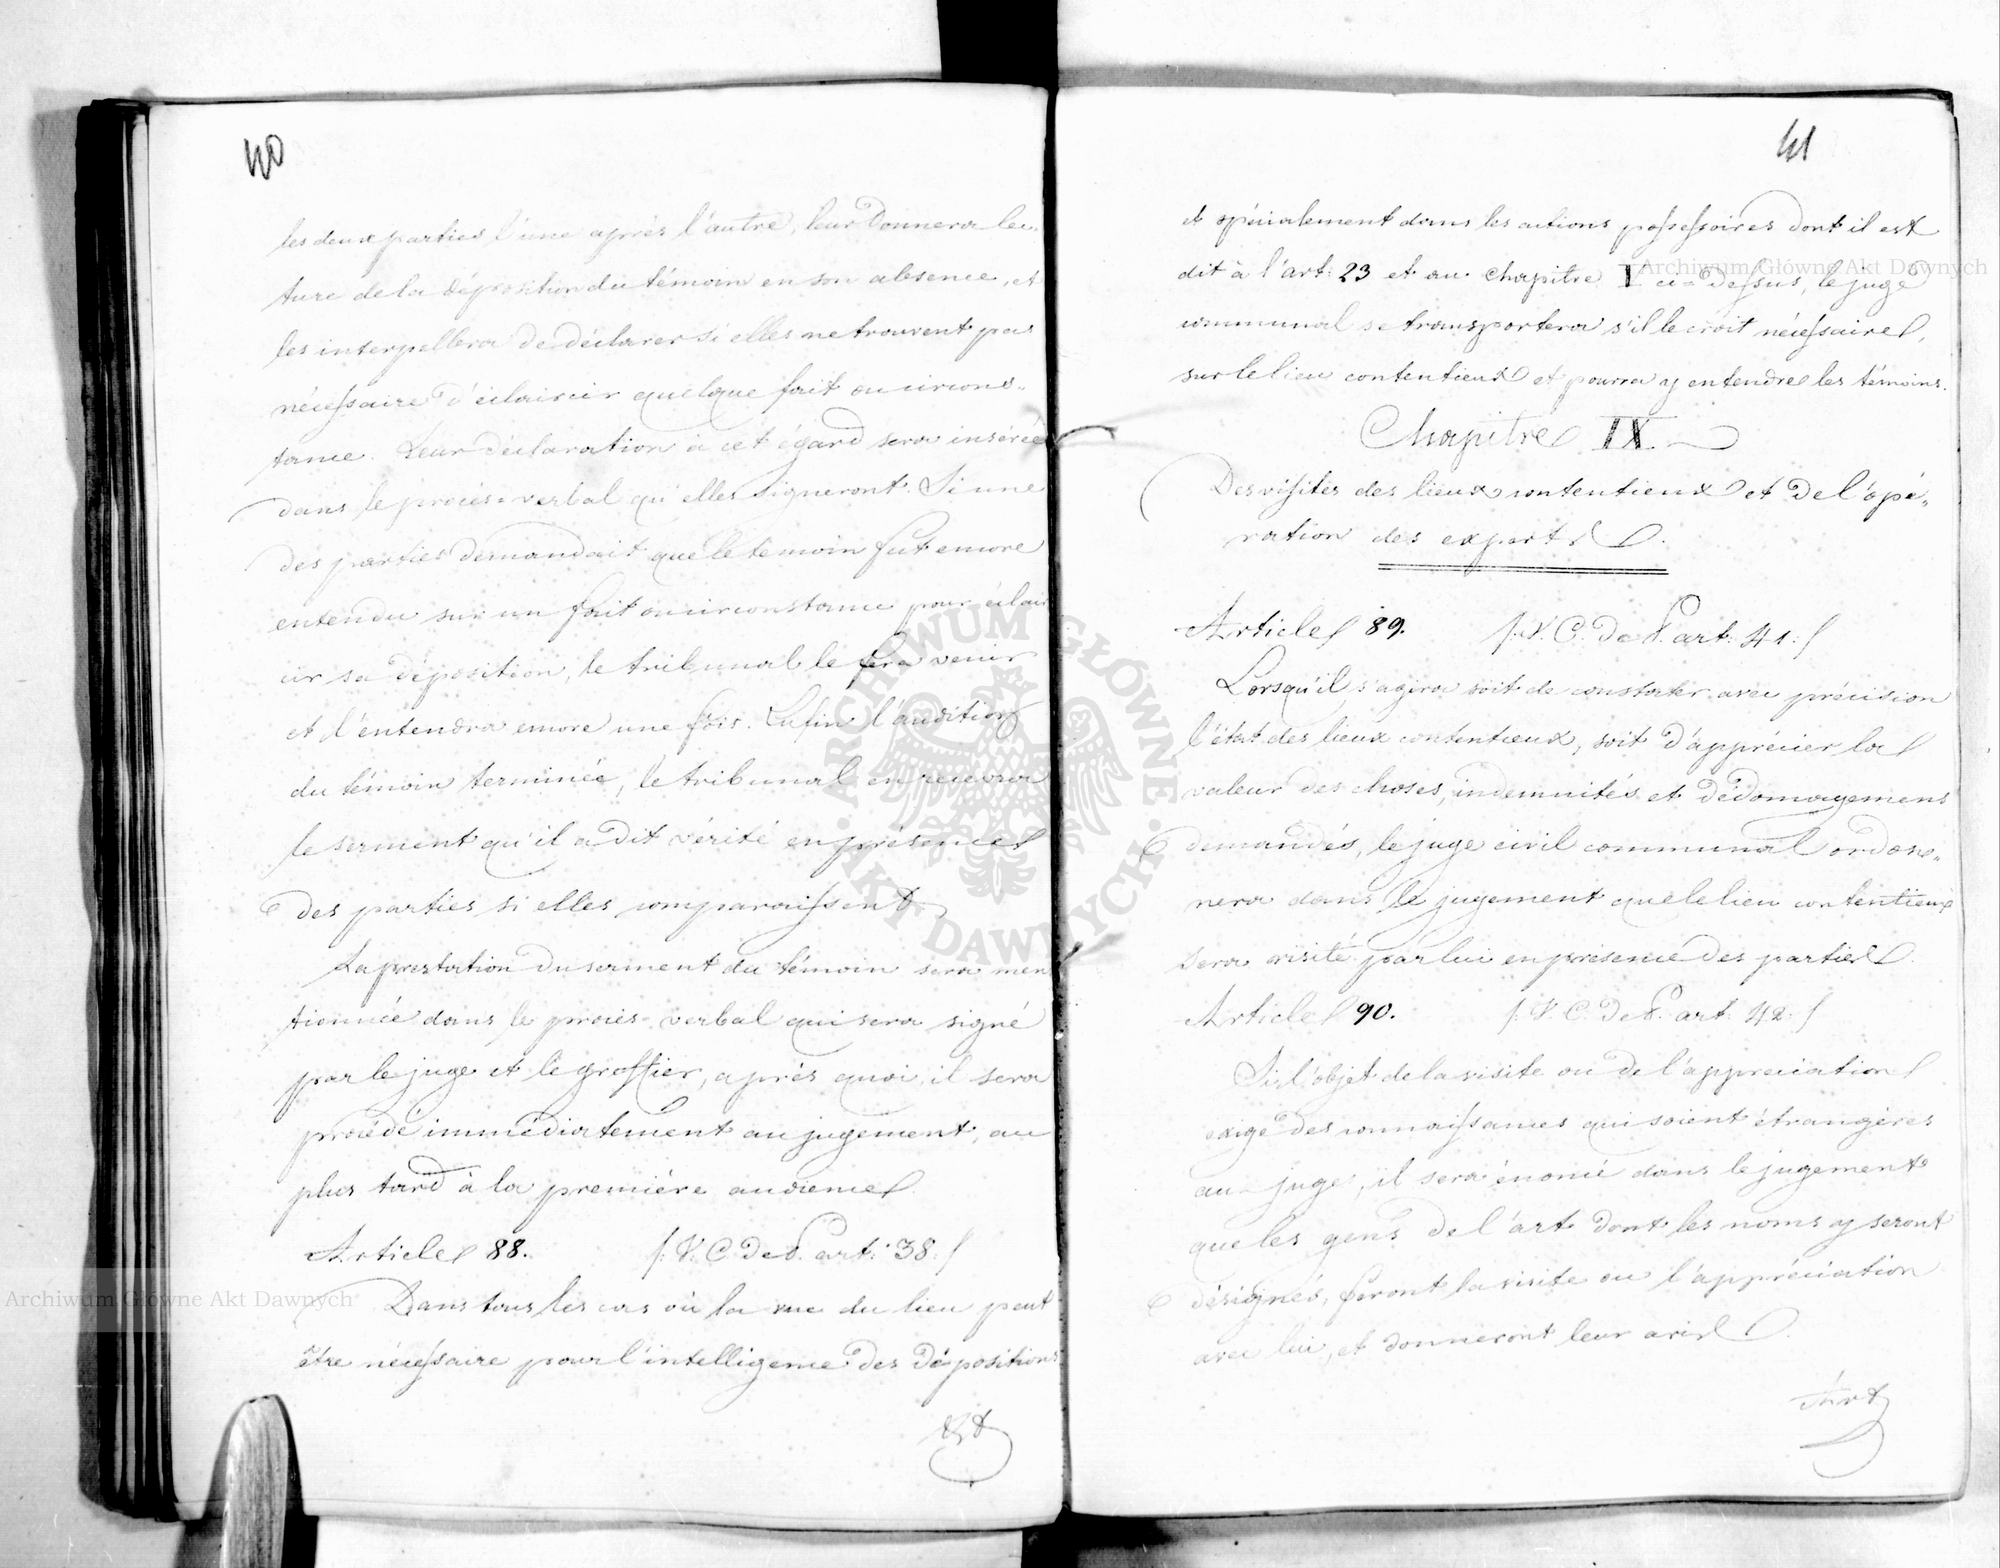 40
les deux parties l'une après l'autre, leur donnera lec-
ture de la déposition du témoin en son absence, et
les interpellera de déclarer si elles ne trouvent pas
nécessaire d'éclaircir quelque fait ou circons-
tance. Leur déclaration à cet égard sera insérée
dans le procès-verbal qu'elles signeront. Si une
des parties demandait que le témoin fut encore
entendu sur un fait ou circonstance pour éclair
cir sa déposition, le tribunal le fera venir
et l'entendra encore une fois. Enfin l'audition
du témoin terminée, le tribunal en recevra
le serment qu'il a dit vérité en présence
des parties si elles comparaissent
La prestation du serment du témoin sera men
tionnée dans le procès-verbal qui sera signé
par le juge et le greffier, après quoi, il sera
procédé immédiatement au jugement, au
plus tard à la première audience.
Article 88. /:V. C. de P. art: 38:/
Dans tous les cas où la vue du lieu peut
être nécessaire pour l'intelligence des dépositions
et
41
et spécialement dans les actions possessoires dont il est
dit à l'art: 23 et au chapitre I ci-dessus, le juge
communal se transportera s'il le croit nécessaire,
sur le lieu contentieux et pourra y entendre les témoins.
Chapitre IX
Des visites des lieux contentieux et de l'opé-
ration des experts.
Article 89. /:V. C. de P. art: 41:/
Lorsqu'il s'agira soit de constater avec précision
l'état des lieux contentieux, soit d'apprécier la
valeur des choses, indemnités et dédomagemens
demandés, le juge civil communal ordon-
nera dans le jugement que le lieu contentieux
sera visité par lui en présence des parties.
Article 90. /:V. C. de P. art: 42:/
Si l'objet de la visite ou de l'appréciation
exige des connaissances qui soient étrangères
au juge, il sera énoncé dans le jugement
que les gens de l'art dont les noms y seront
désignés, feront la visite ou l'appréciation
avec lui, et donneront leur avis.
Art
Archiwum Główne Akt Dawnych
Archiwum Główne Akt Dawnych
ARCHIWUM GŁÓWNE AKT DAWNYCH